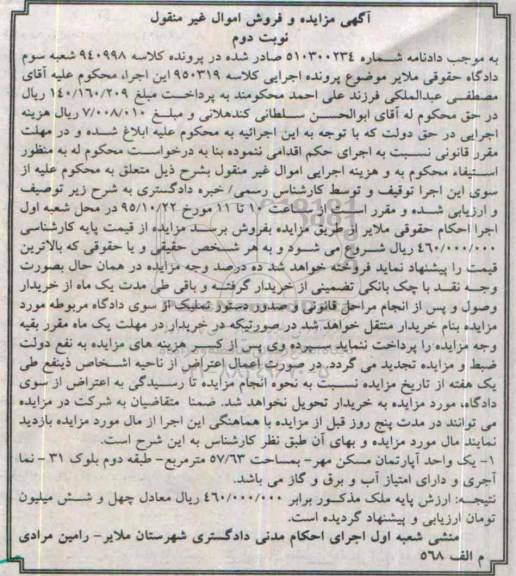 آگهی مزایده و فروش اموال غیر منقول
نوبت دوم
به موجب دادنامه شماره ۵۱۰۳۰۰۲۳۴ صادر شده در پرونده کلاسه ۹۴۰۹۹۸ شعبه سوم
دادگاه حقوقی ملایر موضوع پرونده اجرایی کلاسه ۹۵۰۳۱۹ این اجرا، محکوم علیه آقای
مصطفی عبدالملکی فرزند علی احمد محکومند به پرداخت مبلغ ۱۴۰/۱۶۰/۲۰۹ ریال
در حق محکوم له آقای ابوالحسن سلطانی کندهلانی و مبلغ ۷/۰۰۸/۰۱۰ ریال هزینه
اجرایی در حق دولت که با توجه به این اجرائیه به محکوم علیه ابلاغ شده و در مهلت
مقرر قانونی نسبت به اجرای حکم اقدامی ننموده بنا به درخواست محکوم له به منظور
استیفاء محکوم به و هزینه اجرایی اموال غیر منقول بشرح ذیل متعلق به محکوم علیه از
سوی این اجرا توقیف و توسط کارشناس رسمی/ خبره دادگستری به شرح زیر توصیف
و ارزیابی شده و مقرر است ساعت ۱۰ تا ۱۱ مورخ ۹۵/۱۰/۲۲ در محل شعبه اول
اجرا احکام حقوقی ملایر از طریق مزایده بفروش برسد مزایده از قیمت پایه کارشناسی
۴۶۰/۰۰۰/۰۰۰ ریال شروع می شود و به هر شخص حقیقی و یا حقوقی که بالاترین
قیمت را پیشنهاد نماید فروخته خواهد شد ده درصد وجه مزایده در همان حال بصورت
وجه نقد با چک بانکی تضمینی از خریدار گرفته و باقی طی مدت یک ماه از خریدار
وصول و پس از انجام مراحل قانونی و صدور دستور تملیک از سوی دادگاه مربوطه مورد
مزایده بنام خریدار منتقل خواهد شد در صورتیکه در خریدار در مهلت یک ماه مقرر بقیه
وجه مزایده را پرداخت ننماید سپرده وی پس از کسر هزینه های مزایده به نفع دولت
ضبط و مزایده تجدید می گردد. در صورت اعمال اعتراض از ناحیه اشخاص ذینفع طی
یک هفته از تاریخ مزایده نسبت به نحوه انجام مزایده تا رسیدگی به اعتراض از سوی
دادگاه، مورد مزایده به خریدار تحویل نخواهد شد. ضمنا متقاضیان به شرکت در مزایده
می توانند در مدت پنج روز قبل از مزایده با هماهنگی این اجرا از مال مورد مزایده بازدید
نمایند مال مورد مزایده و بهای آن طبق نظر کارشناس به این شرح است.
۱- یک واحد آپارتمان مسکن مهر- بمساحت ۵۷/۶۳ مترمربع- طبقه دوم بلوک ۳۱ - نما
آجری و دارای امتیاز آب و برق و گاز می باشد.
نتیجه: ارزش پایه ملک مذکور برابر ۴۶۰/۰۰۰/۰۰۰ ریال معادل چهل و شش میلیون
تومان ارزیابی و پیشنهاد گردیده است.
منشی شعبه اول اجرای احکام مدنی دادگستری شهرستان ملایر- رامین مرادی
م الف ۵۶۸